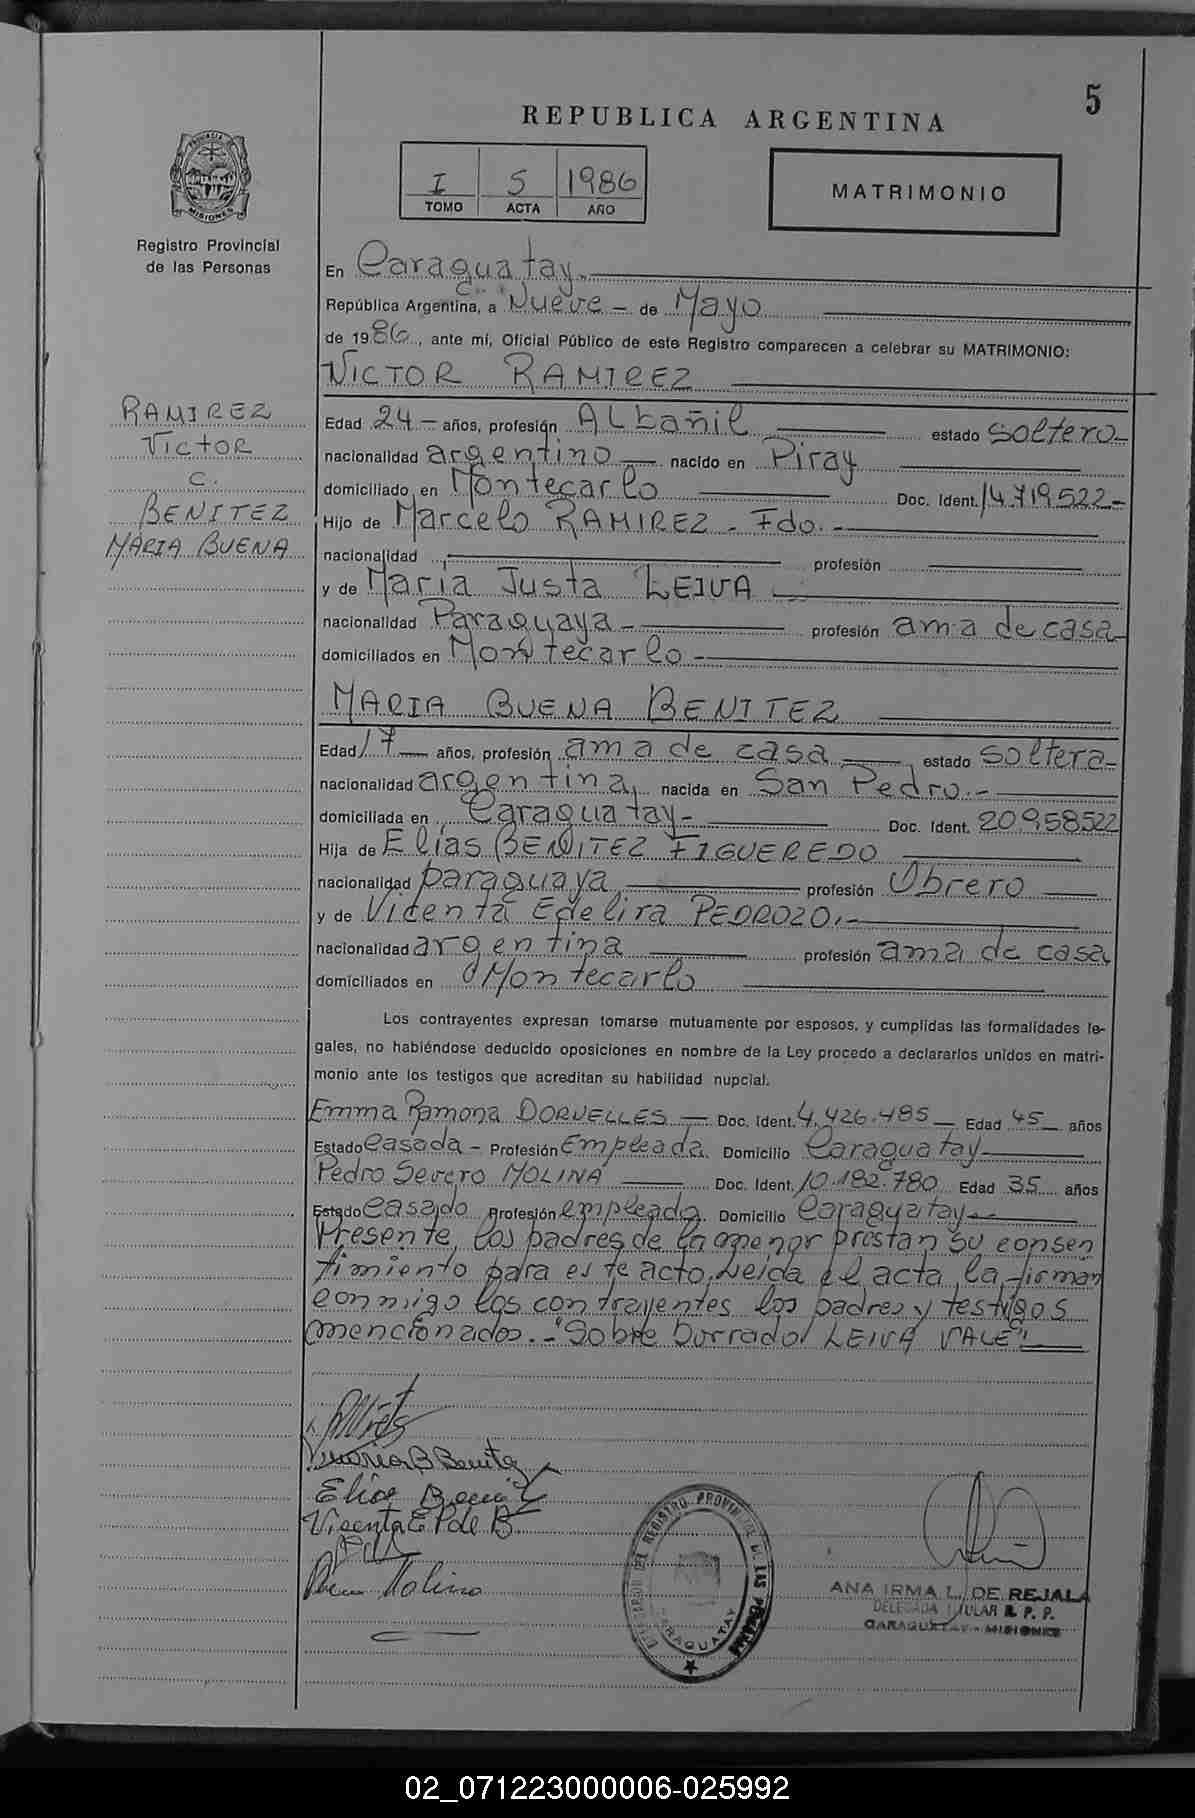 5
REPUBLICA ARGENTINA
I 5 1986
TOMO ACTA AÑO
MATRIMONIO
PROVINCIA DE
MISIONES
Registro Provincial
de las Personas
En Caraguatay.
República Argentina, a Nueve - de Mayo
de 1986, ante mí, Oficial Público de este Registro comparecen a celebrar su MATRIMONIO:
VICTOR RAMIREZ
RAMIREZ
Victor
C.
BENITEZ
MARIA BUENA
Edad 24 - años, profesión Albañil estado soltero-
nacionalidad argentino nacido en Piray
domiciliado en Montecarlo Doc. Ident. 14.719.522-
Hijo de Marcelo RAMIREZ - Fdo. -
nacionalidad profesión
y de María Justa LEIVA
nacionalidad Paraguaya - profesión ama de casa-
domiciliados en Montecarlo -
MARIA BUENA BENITEZ
Edad 17 años, profesión ama de casa estado soltera-
nacionalidad argentina, nacida en San Pedro.-
domiciliada en Caraguatay- Doc. Ident. 20.958.522
Hija de Elías BENITEZ FIGUEREDO
nacionalidad paraguaya profesión Obrero
y de Vicenta Edelira PEDROZO.-
nacionalidad argentina profesión ama de casa
domiciliados en Montecarlo
Los contrayentes expresan tomarse mutuamente por esposos, y cumplidas las formalidades le-
gales, no habiéndose deducido oposiciones en nombre de la Ley procedo a declararlos unidos en matri-
monio ante los testigos que acreditan su habilidad nupcial.
Emma Ramona DORNELLES - Doc. Ident. 4.426.485 Edad 45 años
Estado Casada - Profesión Empleada Domicilio Caraguatay
Pedro Severo MOLINA Doc. Ident. 10.182.780 Edad 35 años
Estado Casado Profesión empleado Domicilio Caraguatay--
Presente los padres de la menor prestan su consen
timiento para este acto. Leida el acta, la firman
conmigo los contrayentes los padres y testigos
mencionados.- "Sobre borrado LEIVA VALE"
Maria B Benitez
Elias Benitez
Vicenta E P de B
Molina
REGISTRO PROVINCIAL DE LAS PERSONAS
CARAGUATAY
ANA IRMA L. DE REJALA
DELEGADA TITULAR R. P. P.
CARAGUATAY - MISIONES
02_071223000006-025992